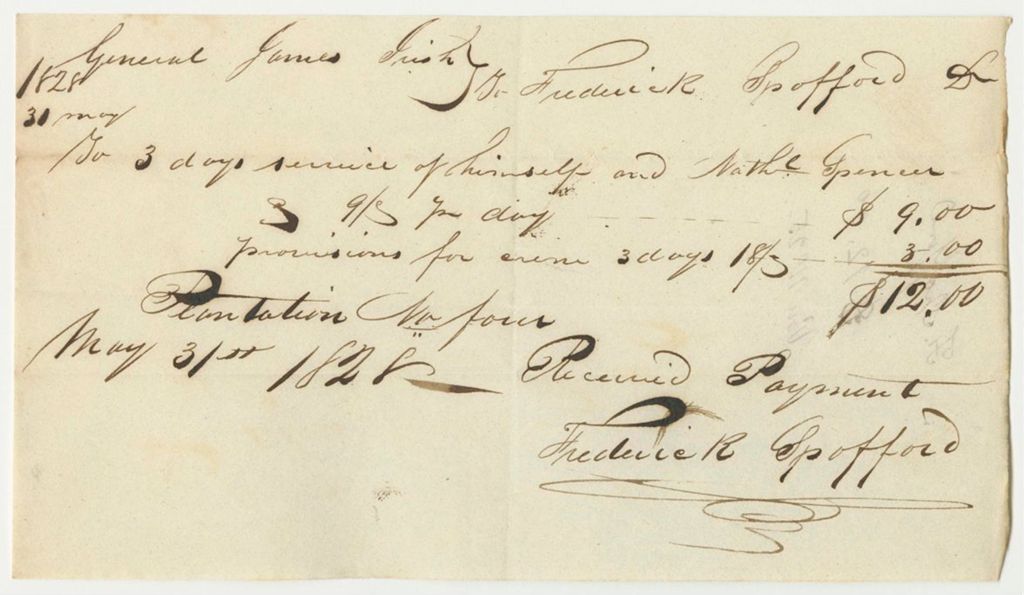 General James Irish } To Frederick Spofford Dr
1828
31 may
To 3 days service of himself and Nathl Spencer
@ 9/ pr day $ 9.00
provisions for crew 3 days 18/ 3.00
$12.00
Plantation No four
May 31st 1828
Received Payment
Frederick Spofford